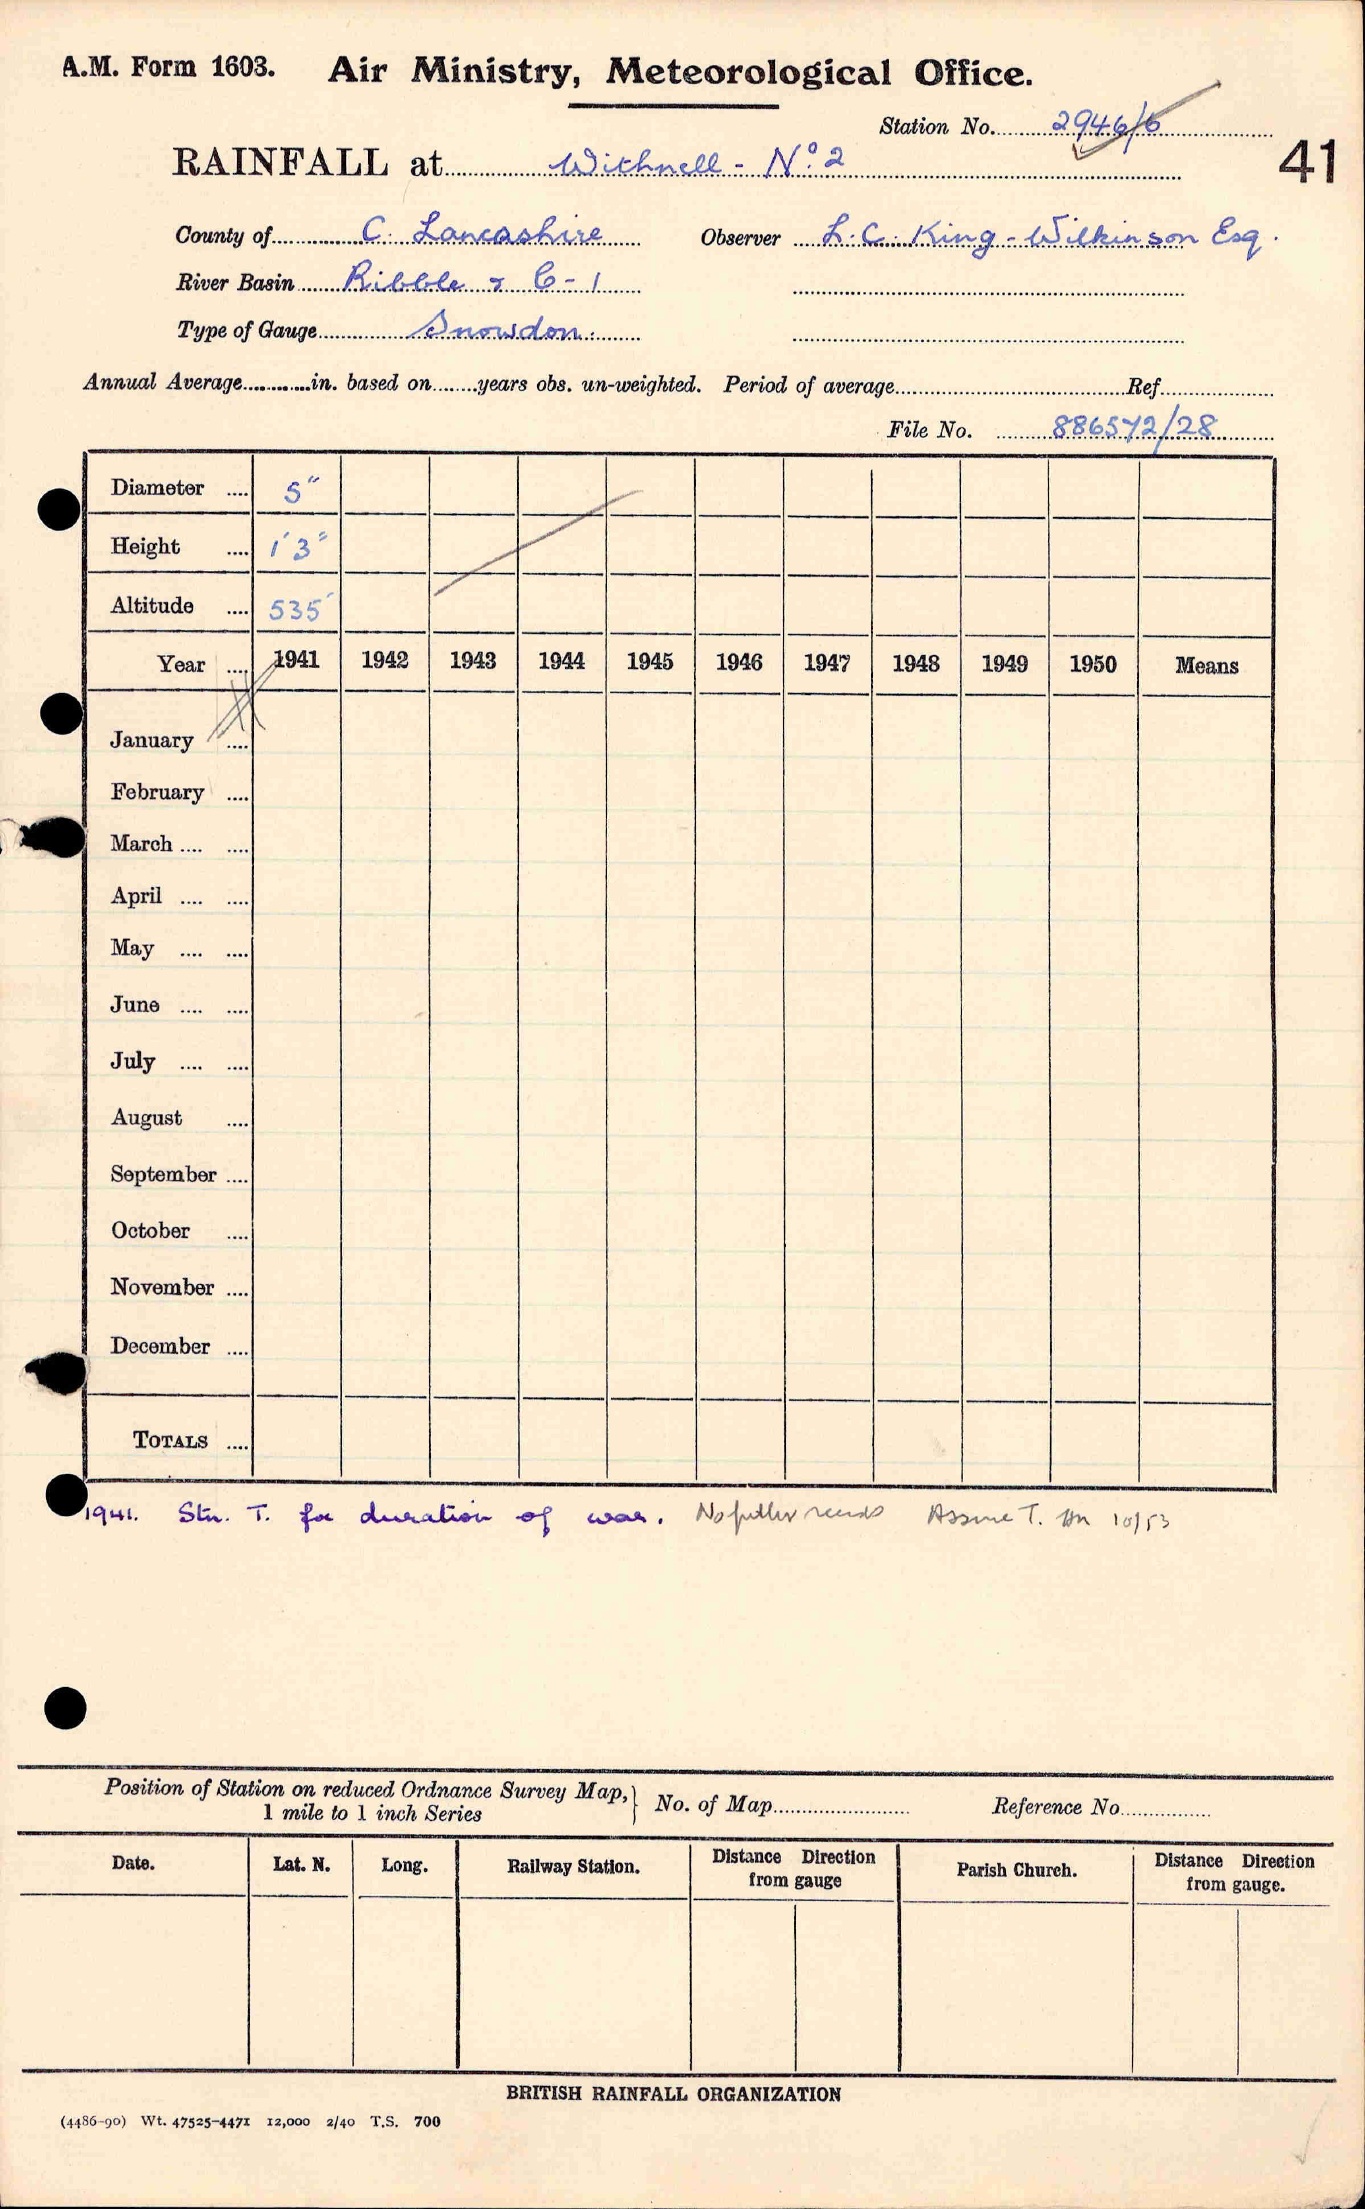 A.M. Form 1603. Air Ministry, Meteorological Office.
Station No. 2946/6
41
RAINFALL at Withnell - No. 2
County of C. Lancashire Observer L.C. King-Wilkinson Esq.
River Basin Ribble & C-1
Type of Gauge Snowdon.
Annual Average in. based on years obs. un-weighted. Period of average Ref
File No. 886572/28
Diameter .... 5"
Height .... 1'3"
Altitude .... 535'
Year .... 1941 1942 1943 1944 1945 1946 1947 1948 1949 1950 Means
January ....
February ....
March .... ....
April .... ....
May .... ....
June .... ....
July .... ....
August ....
September ....
October ....
November ....
December ....
TOTALS ....
1941. Stn. T. for duration of war. No further records Assume T. 10/53
Position of Station on reduced Ordnance Survey Map, } No. of Map Reference No
1 mile to 1 inch Series
Date. Lat. N. Long. Railway Station. Distance Direction from gauge Parish Church. Distance Direction from gauge.
BRITISH RAINFALL ORGANIZATION
(4486-90) Wt. 47525-4471 12,000 2/40 T.S. 700